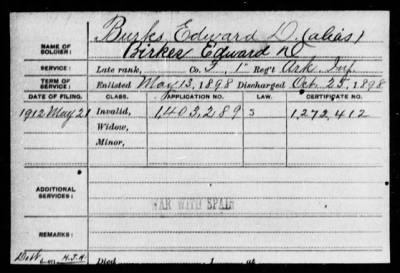 Burks Edward D. (alias)
NAME OF SOLDIER: Birkes Edward D
SERVICE: Late rank, Co. I, 1" Reg't Ark. Inf.
TERM OF SERVICE: Enlisted May 13, 1898 Discharged Oct. 25, 1898
DATE OF FILING. CLASS. APPLICATION NO. LAW. CERTIFICATE NO.
1912 May 21 Invalid, 1,403,289 S 1,272,412
Widow,
Minor,
ADDITIONAL SERVICES:
WAR WITH SPAIN
REMARKS:
Died , 1 , at